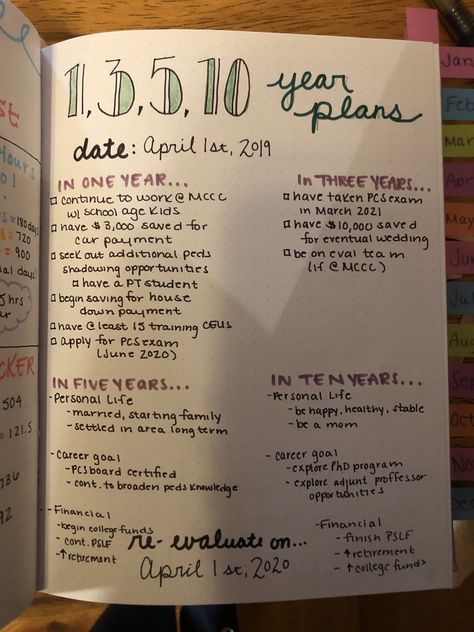 1, 3, 5, 10 year plans
date: April 1st, 2019
IN ONE YEAR...
□ continue to work @ MCCC
w/ school age kids
□ have $3,000 saved for
car payment
□ seek out additional peds
shadowing opportunities
□ have a PT student
□ begin saving for house
down payment
□ have @ least 15 training CEUs
□ apply for PCS exam
(June 2020)
IN THREE YEARS...
□ have taken PCS exam
in March 2021
□ have $10,000 saved
for eventual wedding
□ be on eval team
(if @ MCCC)
IN FIVE YEARS...
- Personal Life
- married, starting family
- settled in area long term
- Career goal
- PCS board certified
- cont. to broaden peds knowledge
- Financial
- begin college funds
- cont. PSLF
- ↑ retirement
IN TEN YEARS...
- Personal Life
- be happy, healthy, stable
- be a mom
- Career goal
- explore PhD program
- explore adjunt proffessor
opportunities
- Financial
- finish PSLF
- ↑ retirement
- ↑ college funds
re-evaluate on...
April 1st, 2020
Jan
Feb
Apr
May
Oct
Hours
= 720
= 900
5 hrs
CKER
504
= 121.5
736
92